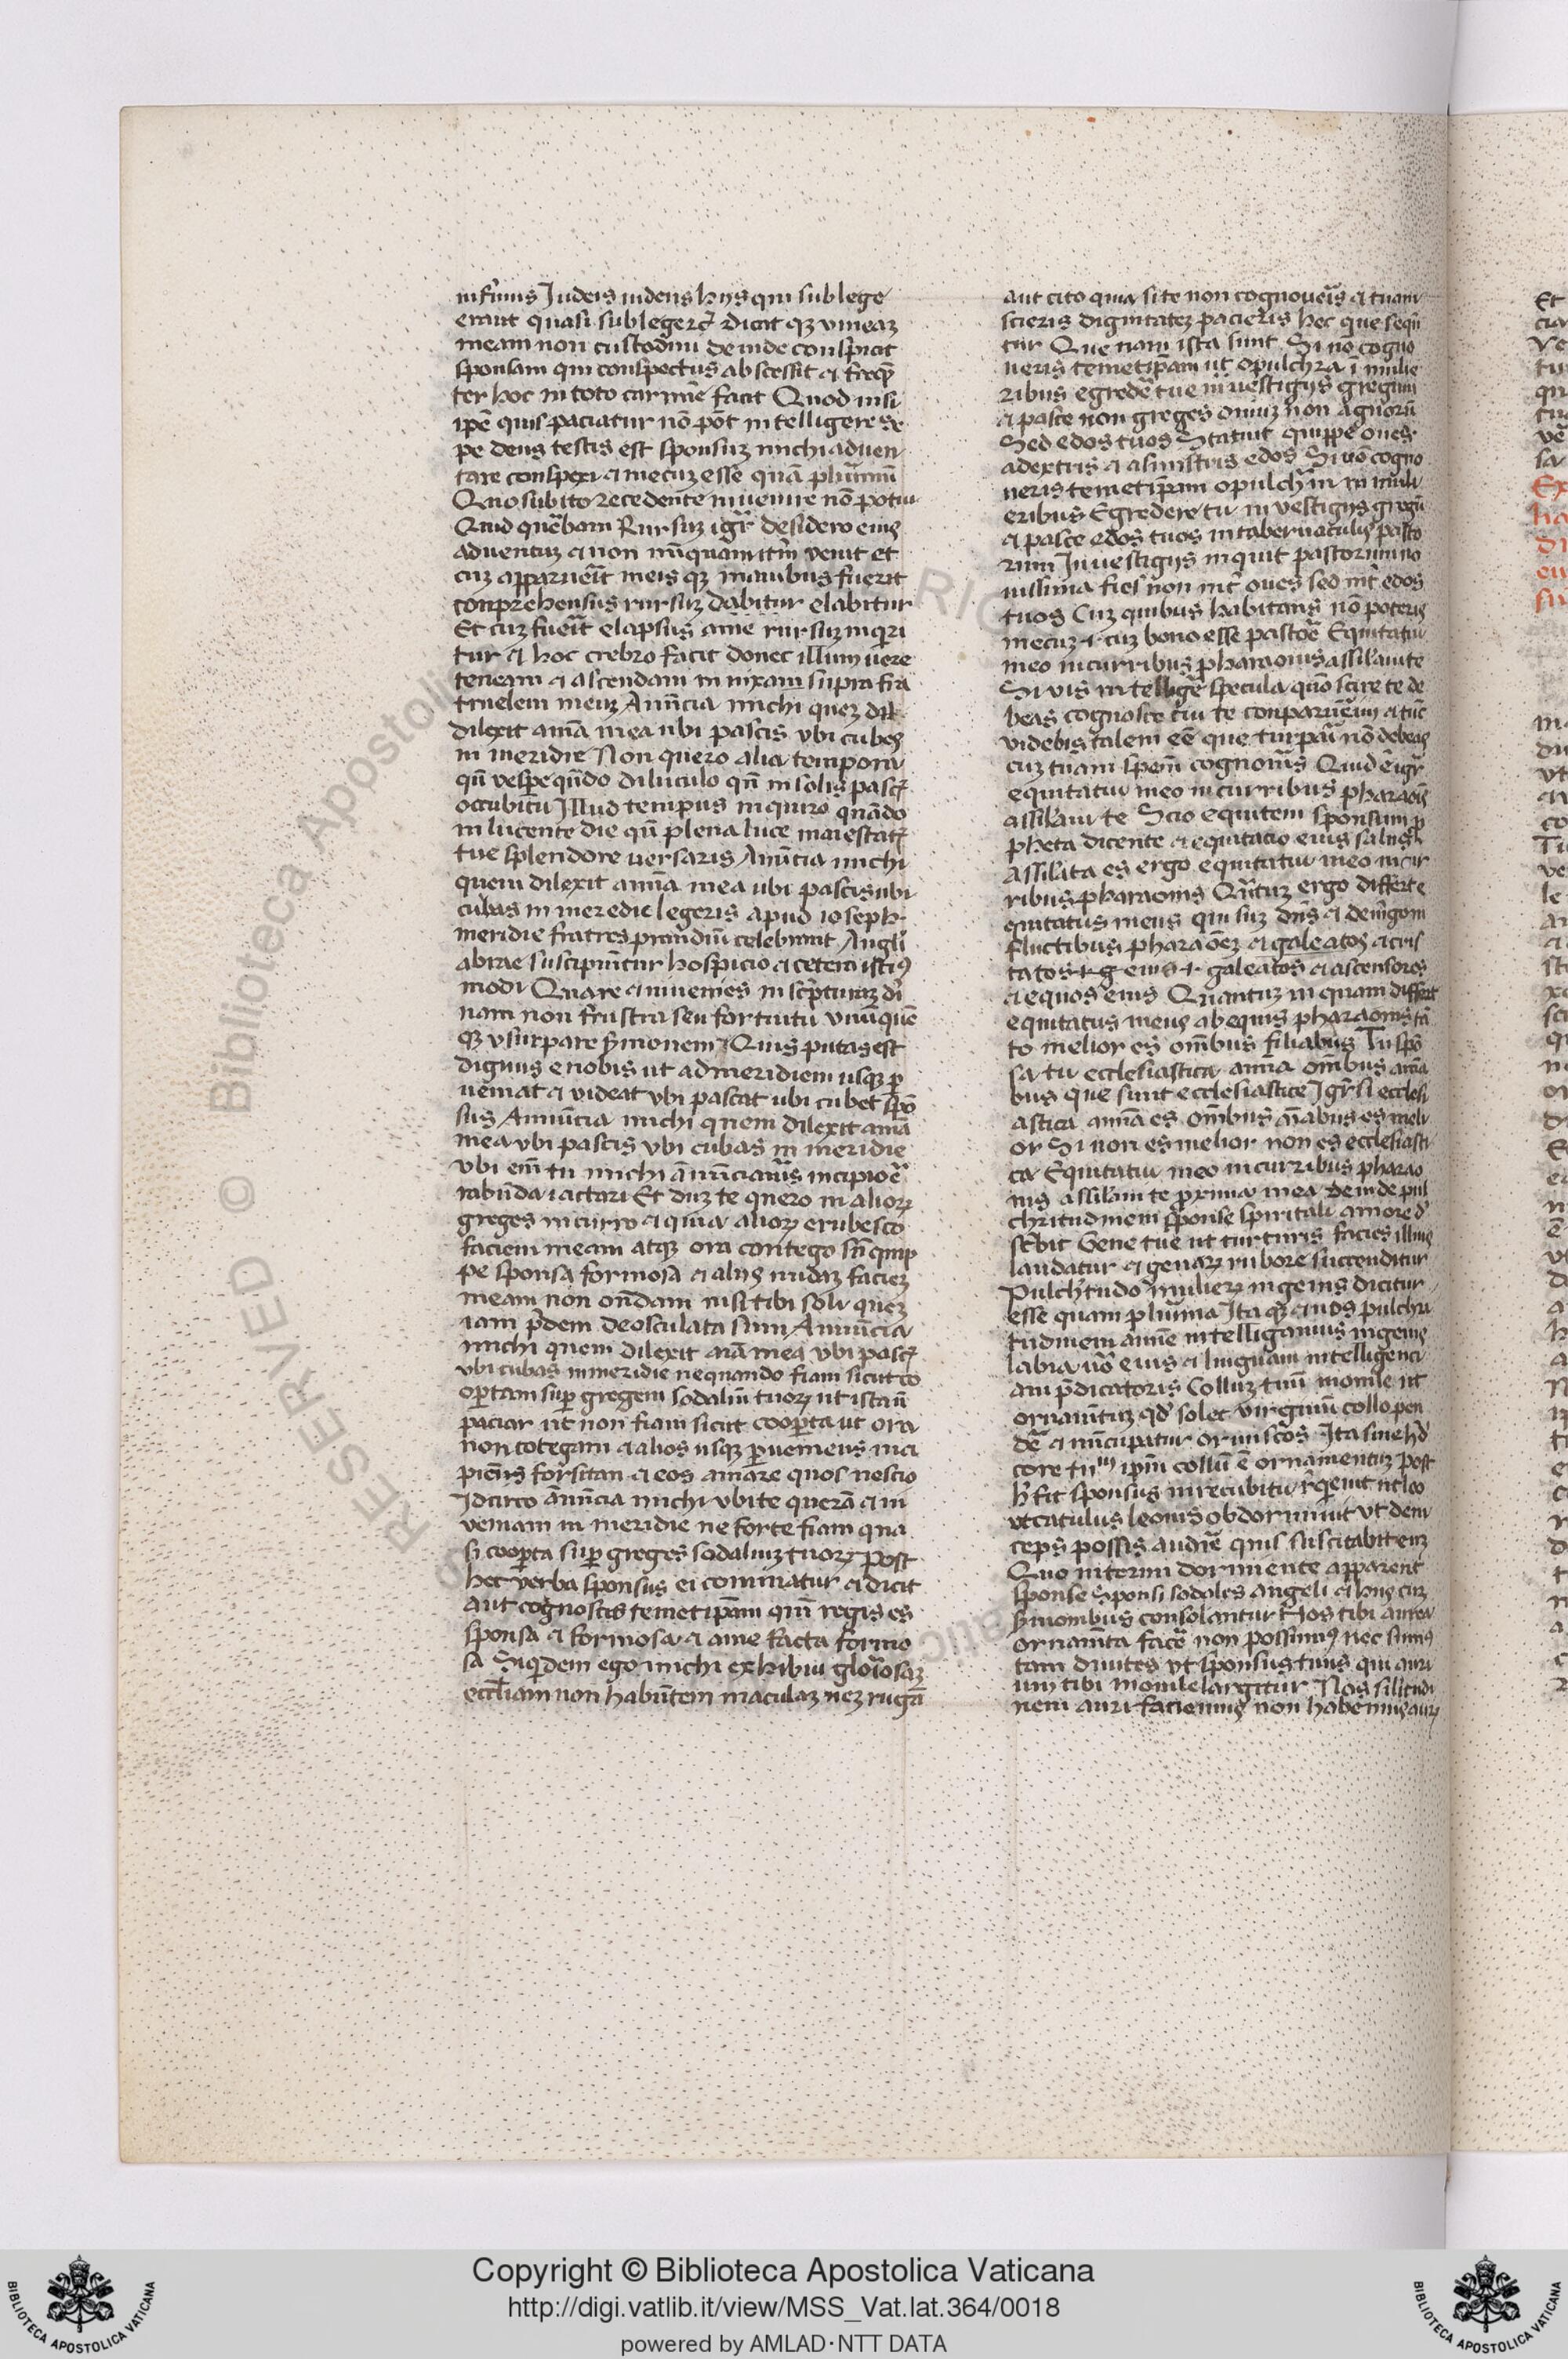 infirmis Iudeis iudeus hijs qui sub lege
erant quasi sub lege rͨ dicit qꝫ vineaꝫ
meam non custodiui deinde conspicit
sponsam qui conspectus abscessit et freqͫ̄
ter hoc in toto carmīe facit Quod nisi
ipē quis paciatur nō pōt intelligere se
pe deus testis est sponsuꝫ michi aduen
tare conspexi et mecuꝫ esse quā plurimū
Quo subito recedente inuenire nō potui
Quid querebam Rursuꝫ igr̄ desidero eius
aduentuꝫ et non nūquam itm̄ venit et
cuꝫ apparuerit meis qꝫ manibus fuerit
conprehensus rursuꝫ dabitur elabitur
Et cuꝫ fuerit elapsus a me rursuꝫ inqri
tur et hoc crebro facit donec illum uere
teneam et ascendam in nixam supra fra
truelem meuꝫ Anūncia michi queꝫ dil
dilexit aīa mea ubi pascis vbi cubes
in meridie Non quero alia tempora
qn̄ vespe qn̄do diluculo qn̄ in solis pascꝫ
occubitu Illud tempus inquiro quādo
in lucente die qn̄ plena luce maiestatꝫ
tue splendore uersaris Anūncia michi
quem dilexit anīa mea ubi pascis ubi
cubas in meredie legeris apud ioseph
meridie fratres prandiū celebrant Angli
abrae suscipiuntur hospicio et cetera istiꝰ
modi Quare et inuenies in scpturaꝫ di
nam non frustra seu fortuitu vnūquē
qꝫ vsurpare sermonem Quis putas est
dignus e nobis ut ad meridiem usqꝫ p
ueniat et videat vbi pascat ubi cubet spō
sus Annūncia michi quem dilexit aīa
mea vbi pascis vbi cubas in meridie
vbi em̄ tu michi anūnciaueris incipio er
rabūda iactari Et duꝫ te quero in alioꝝ
greges incurro et quia alioꝝ erubesco
faciem meam atqꝫ ora contego sū quip
pe sponsa formosa et alijs nudaꝫ facieꝫ
meam non on̄dam nisi tibi soli queꝫ
iam pͥdem deosculata sum Annūncia
michi quem dilexit aīa mea vbi pascꝫ
vbi cubas in meridie nequando fiam sicut co
optam sup gregem sodaliū tuoꝝ ut ista n̄
paciar ut non fiam sicut cooperta ut ora
non cotegam et alios usqꝫ perueniens inci
piens forsitan et eos amare quos nescio
Idcirco anūncia michi vbi te querā et in
veniam in meridie ne forte fiam qua
si cooperta sup greges sodaliuꝫ tuoꝝ Post
hec verba sponsus ei cominatur et dicit
aut cognoscis temetipam qm̄ regis es
sponsa et formosa et a me facta formo
sa Siqͥdem ego michi exhibui gloriosaꝫ
eccliam non habūtem maculaꝫ neꝫ rugā
aut cito quia si te non cognoueris et tuam
scieris dignitateꝫ pacieris hec que sequū
tur Que nam ista sunt Si nō cogno
ueris temetipam ut o pulchra ī mulie
ribus egredere tu e in uestigijs gregum
et pasce non greges ouiuꝫ non agnorū
Sed edos tuos Statuit quippe oues
a dextris et a sinistris edos Si uō cogno
ueris temetipam o pulchra in in muli
eribus Egredere tu in vestigijs gregū
et pasce edos tuos in tabernaculis pasto
rum In uestigijs inquit pastorum no
uissima fies non int̄ oues sed int̄ edos
tuos Cuꝫ quibus habitans nō poteris
mecuꝫ i cuꝫ bono esse pastore Equitatui
meo in curribus pharaonis assilaui te
Si vis intelligere specula quō scire te de
beas cognosce cui te conparauerim et tūc
videbis talem eē que turpari nō debeas
cuꝫ tuam spem cognoueris Quid ē igr̄
equitatui meo in curribus pharaonis
assilaui te Scio equitem sponsum p
pheta dicente et equitacio eius salus
Assilata es ergo equitatui meo in cur
ribus pharaonis Quantuꝫ ergo differt e
quitatus meus qui suꝫ dns et demergam
fluctibus pharaoneꝫ et galeatos et cris
tatos et g eius et galeatos et ascensores
et equos eius Quantuꝫ inquam differt
equitatus meus ab equis pharaonis tā
to melior es omibus filiabus Tu spō
sa tu ecclesiastica anīa omibus anīa
bus que sunt ecclesiastice Igr̄ si ecclesi
astica anīa es omibus aīabus es meli
or Si non es melior non es ecclesiasti
ca Equitatui meo in curribus pharao
nis assilaui te proxima mea deinde pul
chritudinem sponse spiritali amore de
scribit Gene tue ut turturis facies illius
laudatur et genaꝝ rubore succenditur
Pulchritudo mulieꝝ in genis dicitur
esse quam plurima Ita qꝫ et nos pulchri
tudinem anīe intelligamus in genis
labia uō eius et linguam intelligenci
am pdicatoris Colluꝫ tuū monile ut
ornamentuꝫ qd̄ solet virginū collo pen
dere et nūcupatur ormiscos Ita sine hͦ de
core tuum ipm collū ē ornamentuꝫ Post
hͨ fit sponsus in recubitu rͤqeuit ut leo
ut catulus leonis obdormiuit vt dein
ceps possis audire quis suscitabit eum
Quo interim dormiente apparent
sponse sponsi sodales angeli et hijs cuꝫ
sermonibus consolantur Nos tibi aurea
ornamta facere non possumꝰ nec sumꝰ
tam diuites vt sponsus tuus qui auri
um tibi monile largitur Nos silitudi
nem auri faciemus non habemus auꝝ
Copyright © Biblioteca Apostolica Vaticana
http://digi.vatlib.it/view/MSS_Vat.lat.364/0018
powered by AMLAD·NTT DATA